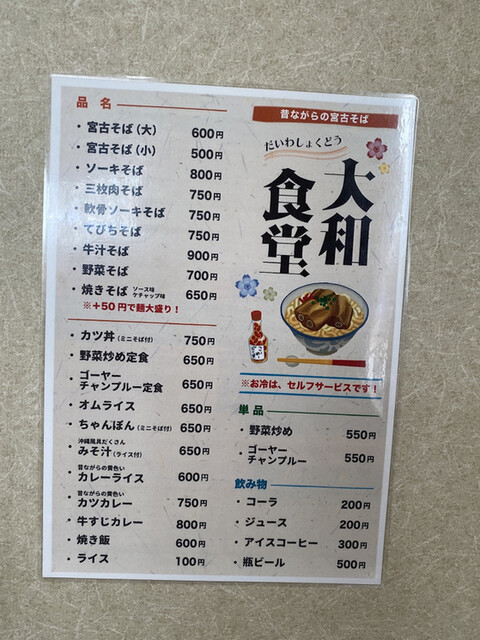 品 名
・宮古そば(大) 600円
・宮古そば(小) 500円
・ソーキそば 800円
・三枚肉そば 750円
・軟骨ソーキそば 750円
・てびちそば 750円
・牛汁そば 900円
・野菜そば 700円
・焼きそば ソース味 ケチャップ味 650円
※+50円で麺大盛り！
・カツ丼(ミニそば付) 750円
・野菜炒め定食 650円
・ゴーヤー
チャンプルー定食 650円
・オムライス 650円
・ちゃんぽん(ミニそば付) 650円
沖縄風具だくさん
・みそ汁(ライス付) 650円
昔ながらの黄色い
・カレーライス 600円
昔ながらの黄色い
・カツカレー 750円
・牛すじカレー 800円
・焼き飯 600円
・ライス 100円
昔ながらの宮古そば
だいわしょくどう
大和
食堂
※お冷は、セルフサービスです！
単品
・野菜炒め 550円
・ゴーヤー
チャンプルー 550円
飲み物
・コーラ 200円
・ジュース 200円
・アイスコーヒー 300円
・瓶ビール 500円